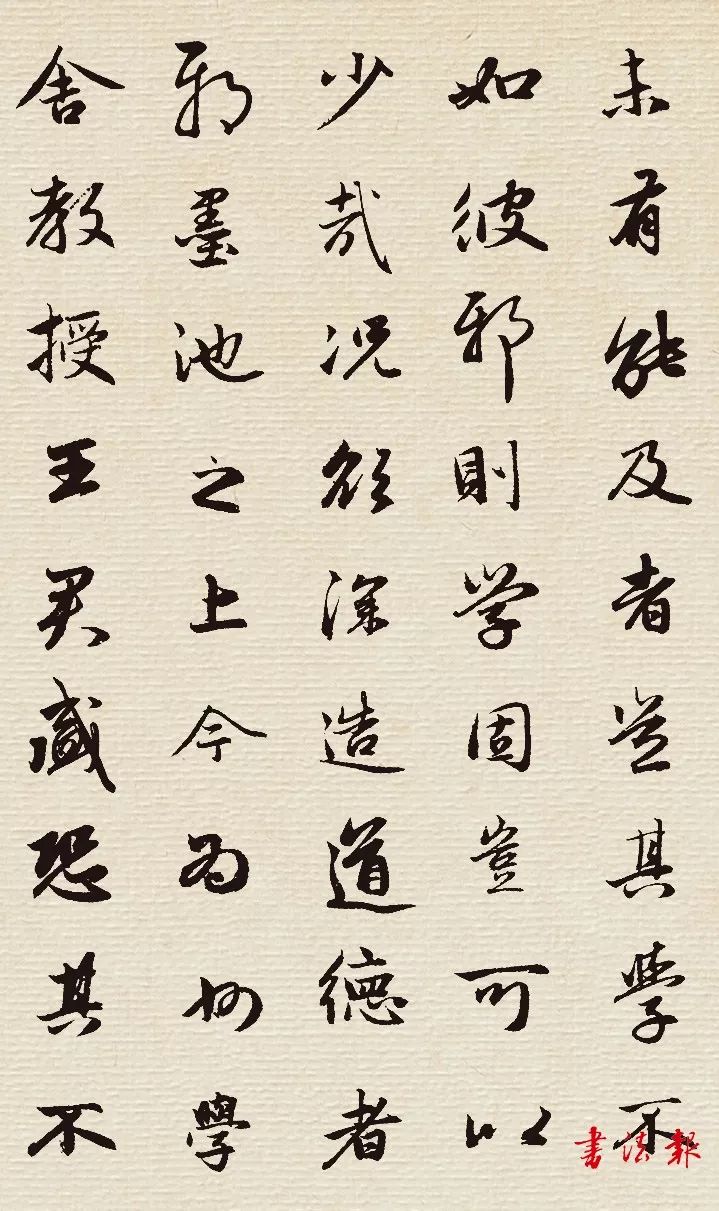 未有能及者豈其學不
如彼邪則学固豈可以
少哉况欲深造道德者
邪墨池之上今为州學
舍教授王君盛恐其不
書法報